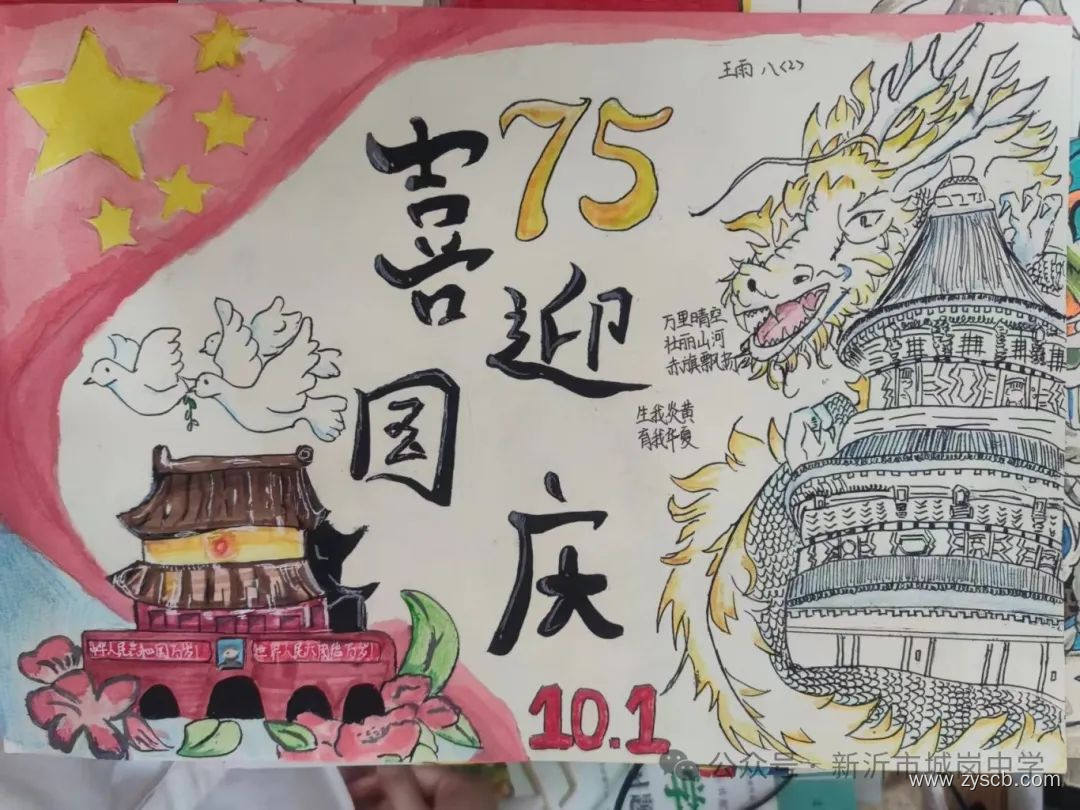 王雨 八<2>
75
喜迎
国庆
万里晴空
壮丽山河
赤旗飘扬
生我炎黄
育我华夏
中华人民共和国万岁!
世界人民大团结万岁!
10.1
公众号 新沂市城岗中学
www.zyscb.com